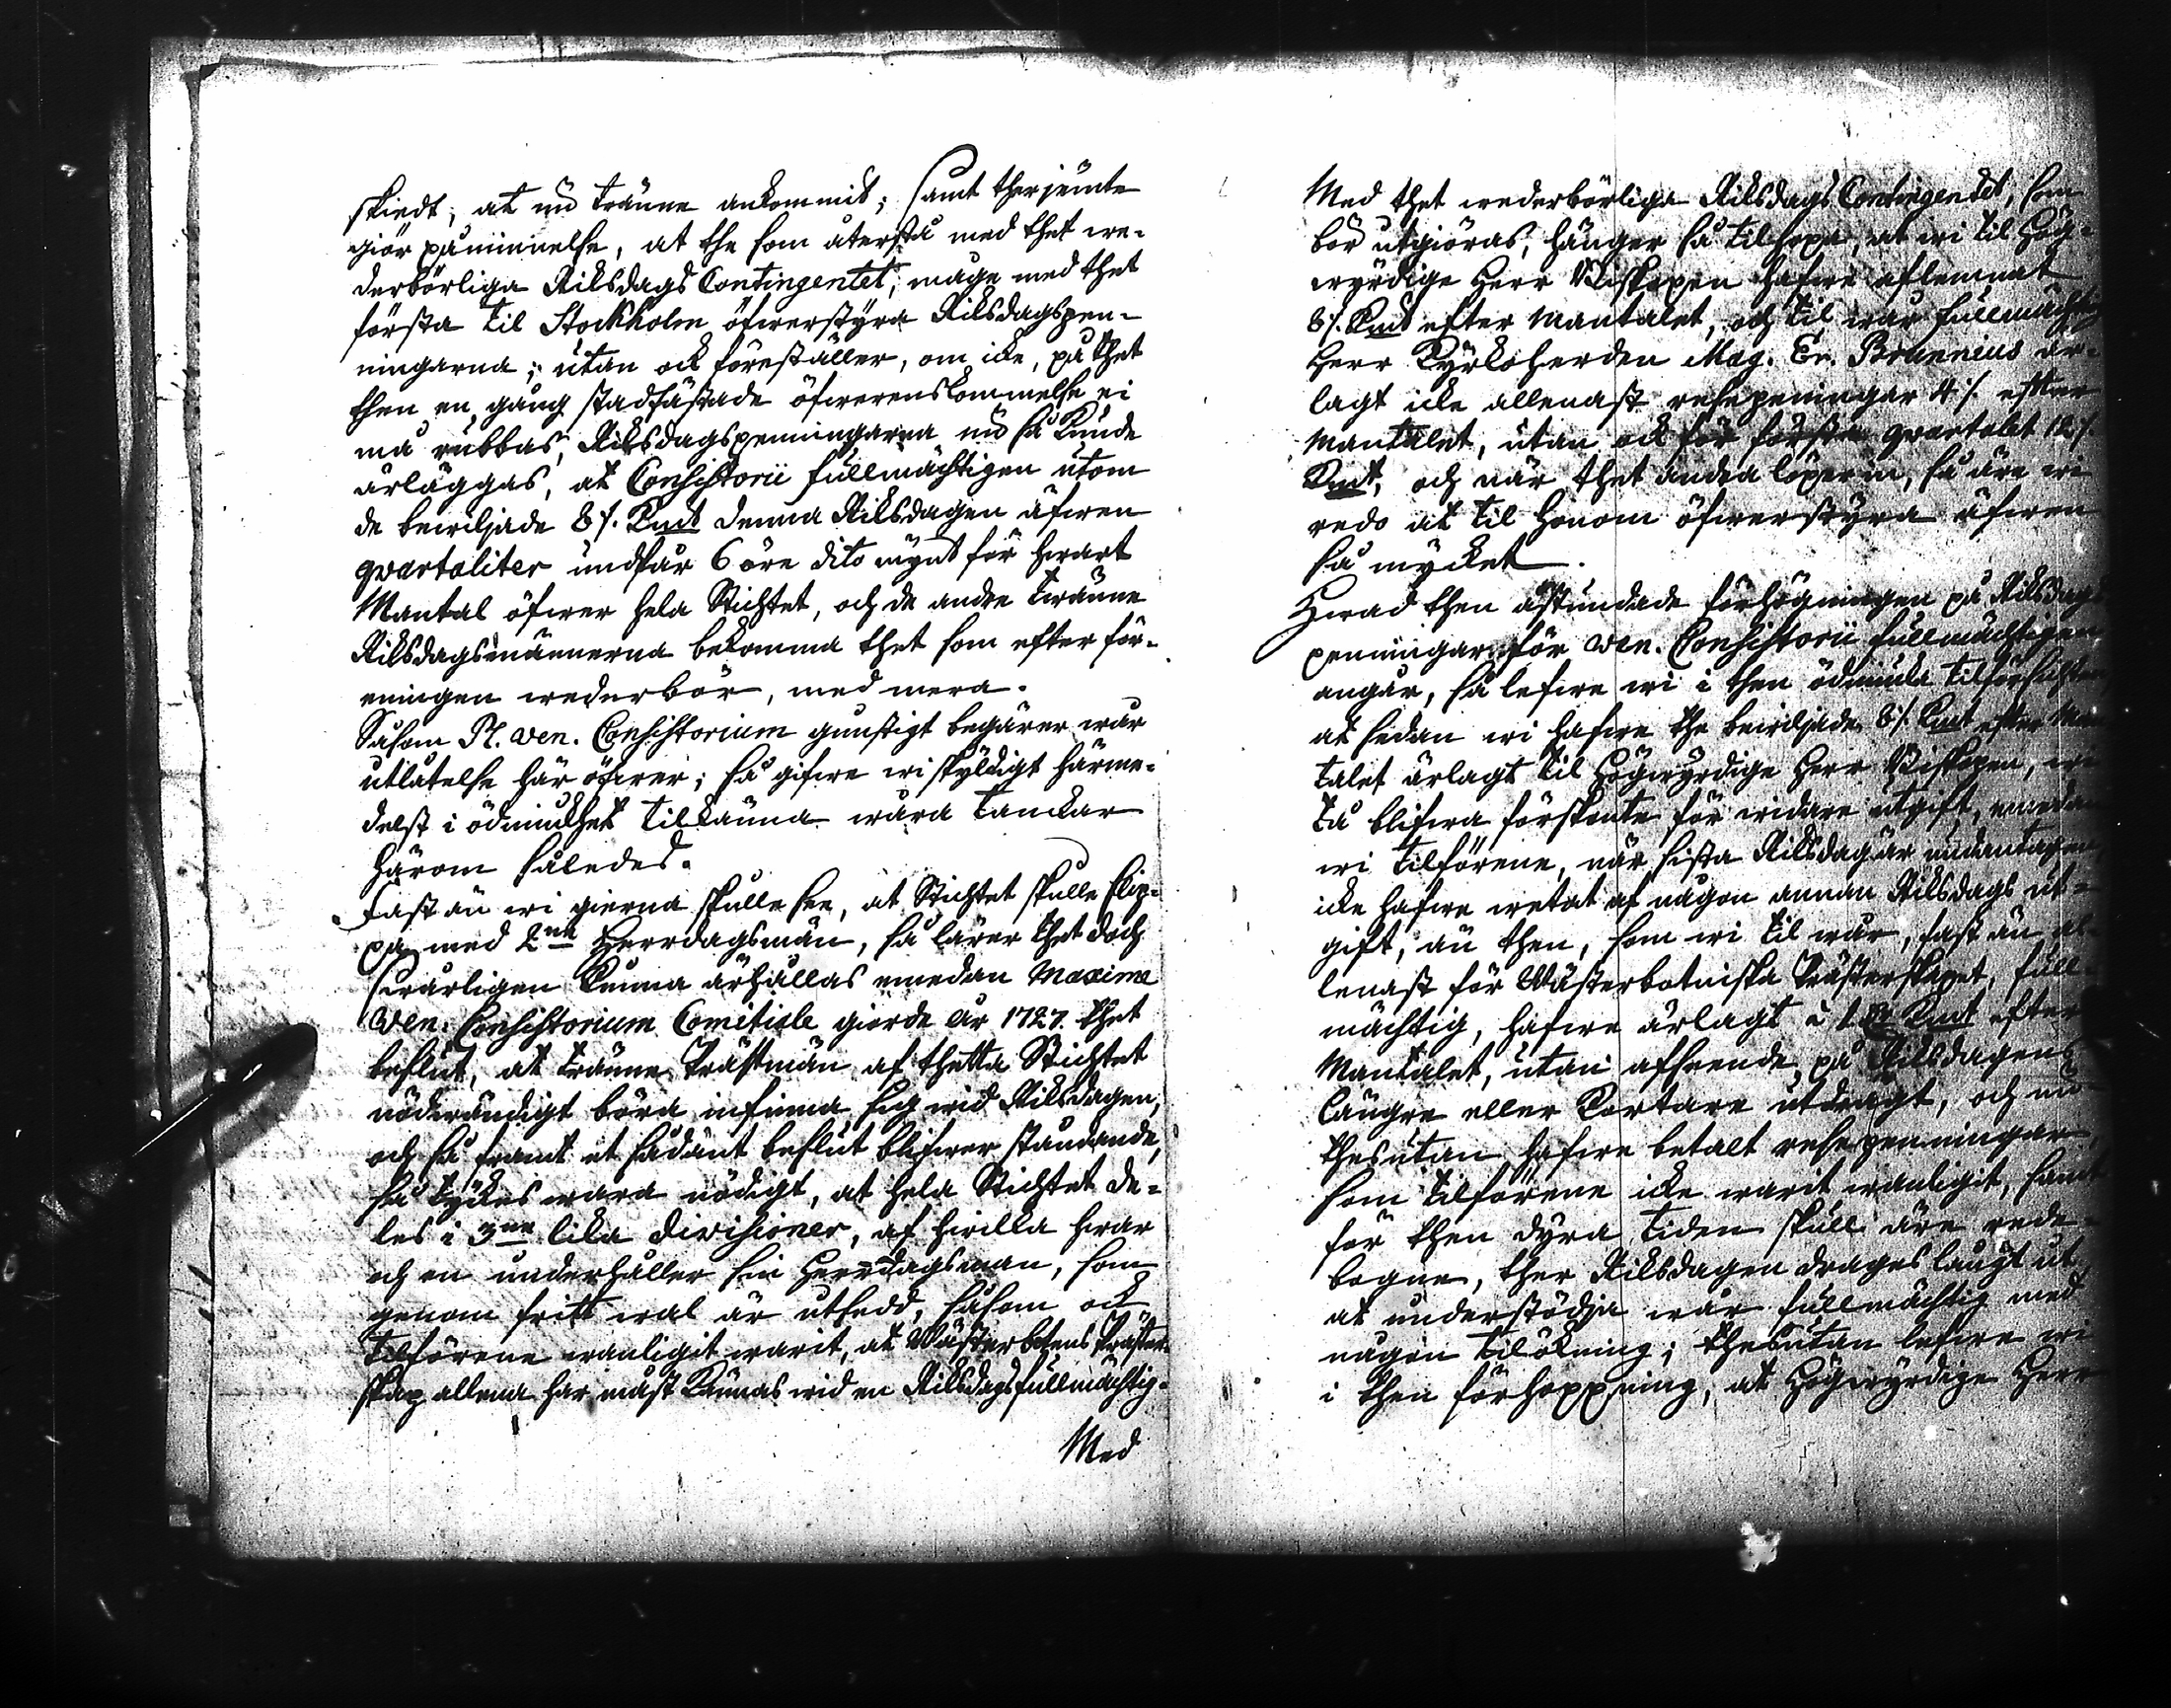 skiedt, at nu tränne ankommit; samt therjemte
giör påminnelse, at the som återstå med thet we-
derbörliga Riksdags Contingentet, måge med thet
första til Stockholm öfwerstyra Rikdagspen-
ningarna; utan ock föreställer, om icke, på thet
then en gång stadfästade öfwerenskommelse ei
må rubbas, Riksdagspenningarna nu så kunde
ärläggas, at Consistorii fullmächtigen utom
de bewiljade 8 /. Kmt denna Riksdagen äfwen
qvartaliter undfår 6 öre dito mynt för hwart
Mantal öfwer hela Stichtet, och de andre twänne
Riksdagsmännerna bekomma thet som efter för-
eningen wederbör, med mera.
Såsom Pl. Ven. Consistorium gunstigt begärer wår
utlåtelse här öfwer; så gifwe wi skyldigt härme-
delst i ödmiukhet tilkänna wåra tanckar
härom således.
Fast än wi gierna skulle see, at Stichtet skulle slip-
pa med 2ne Herrdagsmän, så lärer thet doch
swårligen kunna ärhållas emedan Maxime
Ven. Consistorium Comitiale giorde år 1727. thet
beslut, at tränne Prästmän af thetta Stichtet
nödwändigt böra infinna sig wid Riksdagen,
och så framt et sådant beslut blifwer ståndande,
så tyckes wara nödigt, at hela Stichtet de-
les i 3ne lika divisioner, af hwilka hwar
och en underhåller sin Herrdagsman, som
genom fritt wal är utsedd, såsom ock
tilförene wanligit warit, at Wästerbotens Präster-
skap allena har måst kännas wid en Riksdagsfullmächtig.
Med
Med thet wederbörliga Riksdags Contingentet, som
bör utgiöras, hänger så tilhopa, at wi til Hög-
wyrdige Herr Biskopen hafwe aflemnat
8 /. Kmt efter Mantalet, och til wår fullmächtig
Herr Kyrkoherden Mag. Er. Brunnius är-
lagt icke allenast resepeningar 4 /. efter
Mantalet, utan ock för första qvartalet 12 /.
Kmt, och när thet andra löper in, så äre wi
redo at til honom öfwerstyra äfwen
så mycket.
Hwad then åstundade förhögningen på Riksdags
penningar för Ven. Consistorii fullmächtigen
angår, så lefwe wi i then ödmiuka tilförsichten
at sedan wi hafwe the bewiljade 8 /. Kmt efter Man
talet ärlagt til Högwyrdige Herr Biskopen, wi
tå blifwa förskonte för widare utgift, emedan
wi tilförene, när sista Riksdag är undantagen
icke hafwe wetat af någon annan Riksdags ut-
gift, än then, som wi til wår, fast än al-
lenast för Wästerbotniska Prästerskapet, full-
mächtig, hafwe ärlagt à 1 Kmt efter
Mantalet, utan afseende på Riksdagens
längre eller kortare utdrägt, och nu
thesutan hafwe betalt resepenningar,
som tilförene icke warit wanligit, samt
för then dyra tiden skull äre rede-
bogne, ther Riksdagen drages långt ut,
at understödja wår fullmächtig med
någon tilökning; thesutan lefwe wi
i then förhoppning, at Högwyrdige Herr